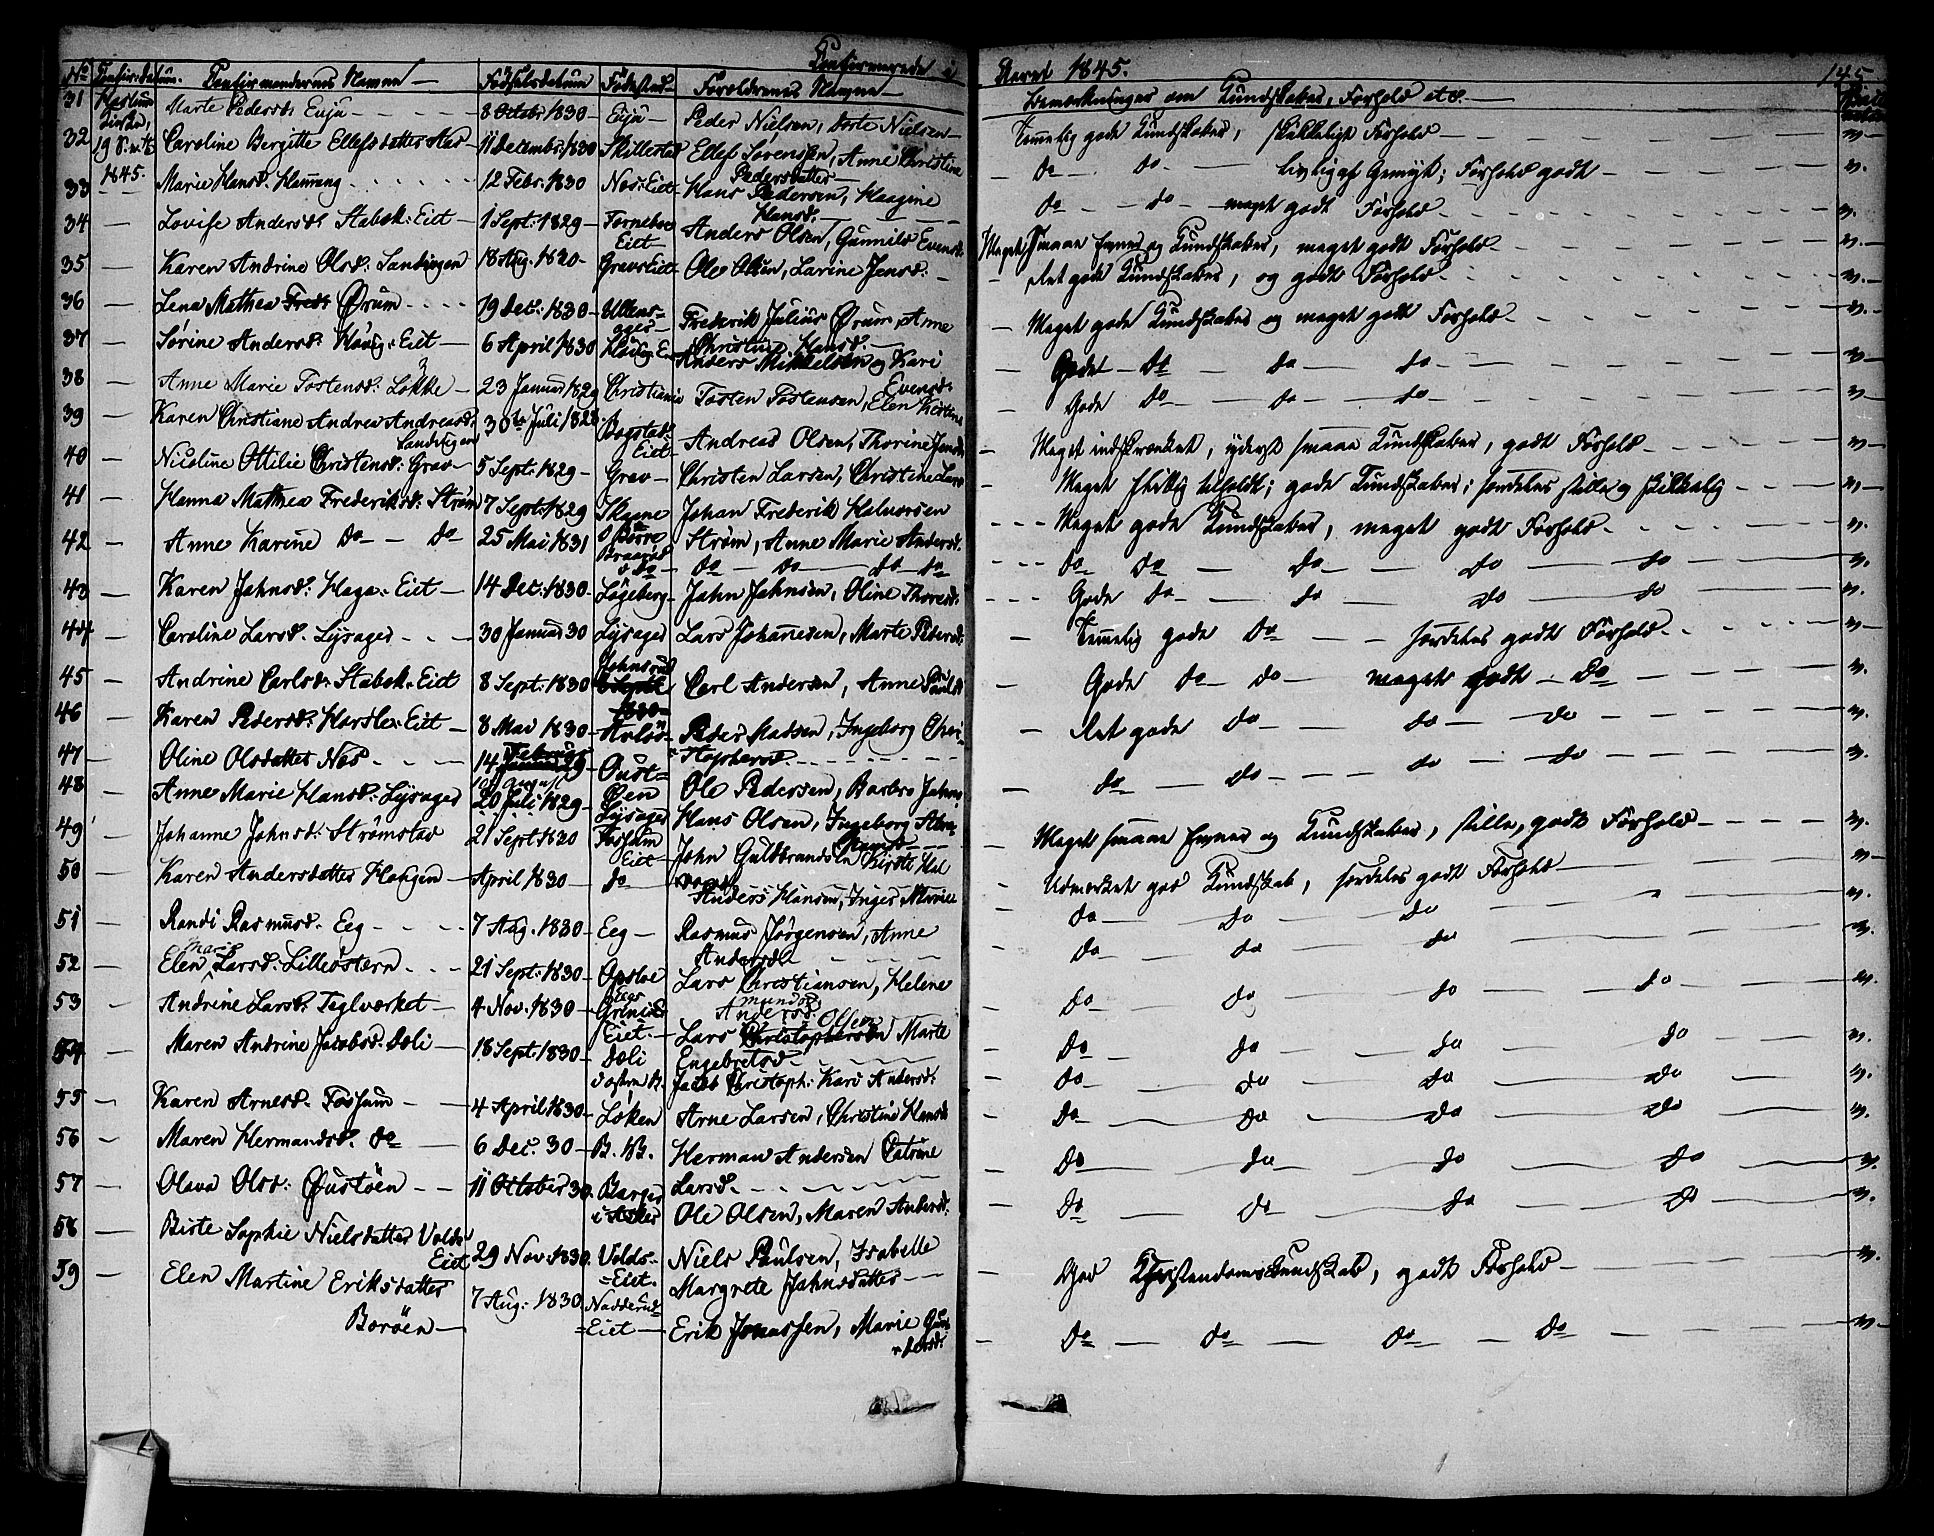 Confirmerede i Aaret 1845. 145
No Confir:datum. Confirmandernes Navne — Fødselsdatum Fødested Forældrenes Navne — Bemærkninger om Kundskaber, Forhold etc. —
31 Haslum Kirke, Marte Pedersd: Evju - - - 8 Octobr 1830 - Evju - Peder Nielsen, Dorte Nielsen — Temmelig gode Kundskaber, skikkeligt Forhold —
32 Caroline Bergitte Ellefsdatter Aas - 11 Decembr 1830 Skillestad Ellef Sørenssen, Anne Christine Pedersdatter — do - do - livlig af Gemyt; Forhold godt -
33 1845. Marie Hansd: Hamang - - - 12 Febr: 1830 Næs: Eiet Hans Pedersen, Haagine Hansd. — do - do - meget godt Forhold -
34 — Lovise Andersd: Stabek: Eiet — 1 Sept: 1829 - Torneboe Eiet Anders Olsen, Gunnild Evensd: Meget smaae Evner og Kundskaber, meget godt Forhold -
35 — Karen Andrine Olsd: Sandvigen 18 Aug. 1830 - Gravs Eiet Ole Olsen, Larine Jensd. — Ret gode Kundskaber, og godt Forhold -
36 — Lena Mathea Fred: Ørum - - - 19 Dec: 1830 - Ullens-ager - Frederik Julius Ørum, Anne Christine Hansd. — Meget gode Kundskaber og meget godt Forhold -
37 — Sørine Andersd: Høvig: Eiet — 6 April 1830 Høvig: Ei Anders Mikkelsen og Kari Evensd: Gode - do - do - do -
38 — Anne Marie Tostensd: Løkke — 23 Januar 1829 Christiania Tosten Tostensen, Elen Kirstine Gode do - do - do -
39 — Karen Christiane Andrea Andreasd: Sandvigen 30te Juli 1828. Bogstad: Eiet - Andreas Olsen, Thorine Jensd: Meget indskrænket, yderst smaae Kundskaber, godt Forhold -
40 — Nicoline Ottilie Christensd: Grav — 5 Sept: 1829 - Grav — Christen Larsen, Christine Larsd Meget flittig tilholdt; gode Kundskaber; særdeles stille og skikkelig -
41 — Hanna Mathea Frederiksd: Strøm 7 Sept: 1829 Johan Frederik Halvorsen Strøm, Anne Marie Andersd. Meget gode Kundskaber, meget godt Forhold -
42 — Anne Karine do - - do 25 Mai 1831 do - do — do do do do — do — do — do
43 — Karen Jahnsd: Haga: Eiet — 14 Dec: 1830 - Løgeberg - Jahn Jahnsen, Oline Thoresd: Gode do - do do do
44 — Caroline Larsd. Lysager - - - 30 Januar 30 Lysager Lars Johannesen, Marte Pedersd: Temmelig gode do — særdeles godt Forhold -
45 — Andrine Carlsd: Stabek: Eiet 8 Sept: 1830 Johnsrud Carl Andersen, Anne Paulsd Gode do - do — meget godt - do —
46 — Karen Pedersd: Harsle: Eiet — 8 Mai 1830 - Avløs - Peder Madsen, Ingeborg Chri-stophersd — Ret gode do — do — do
47 — Oline Olsdatter Næs - - - 14 August Oust-øen Ole Pedersen, Barbro Jahns: do — do — do — do
48 — Anne Marie Hansd: Lysager 20 Juli 1829 - Lysager Hans Olsen, Ingeborg Meget smaae Evner og Kundskaber, stille, godt Forhold -
49 — Johanne Johnsd: Strømstad 21 Sept 1830 Fossum Eiet — John Guldbrandsen Kirsti Hal Udmærket god Kundskab, særdeles godt Forhold —
50 — Karen Andersdatter Haugen - April 1830 — do - Anders Hansen, Inger Marie do — do do
51 — Randi Rasmusd. Eeg - - - 7 Aug. 1830 - Eeg - Rasmus Jørgensen, Anne Andersd. do — do — do
52 — Elen Marie Larsd: Lilleøstern - - - 21 Sept: 1830 - Opsloe Lars Christiansen, Helene do — do — do — do
53 — Andrine Larsd. Teglværket — 4 Nov. 1830 - Grini Eiet. - Lars Christophersen Olsen Marte Engebretsd - do — do — do — do
54 — Maren Andrine Jacobsd. Dæli — 18 Sept: 1830 - Dæli Jacob Christoph: Kari Andersd: do — do — do — do
55 — Karen Arnesd. Fossum - - 4 April 1830 - Løken Arne Larsen, Christine Hansd: do — do — do — do
56 — Maren Hermandsd. do — 6 Dec. 30 - B. B. Herman Andersen Catrine Larsd. do — do — do — do
57 — Olava Olsd: Øustøen - - 11 October 30. Barger i Asker Ole Olsen, Maren Andersd: do — do — do — do
58 — Birte Sophie Nielsdatter Volds Eiet 29 Nov: 1830. Volds-Eiet. Niels Paulsen, Isabelle Margrete Jahnsdatter - God Christendomskundskab, godt Forhold -
59 — Elen Martine Eriksdatter Borøen — 7 Aug: 1830 Nadderud-Eiet — Erik Jonassen, Marie Gun-dersd: do — do — do — do